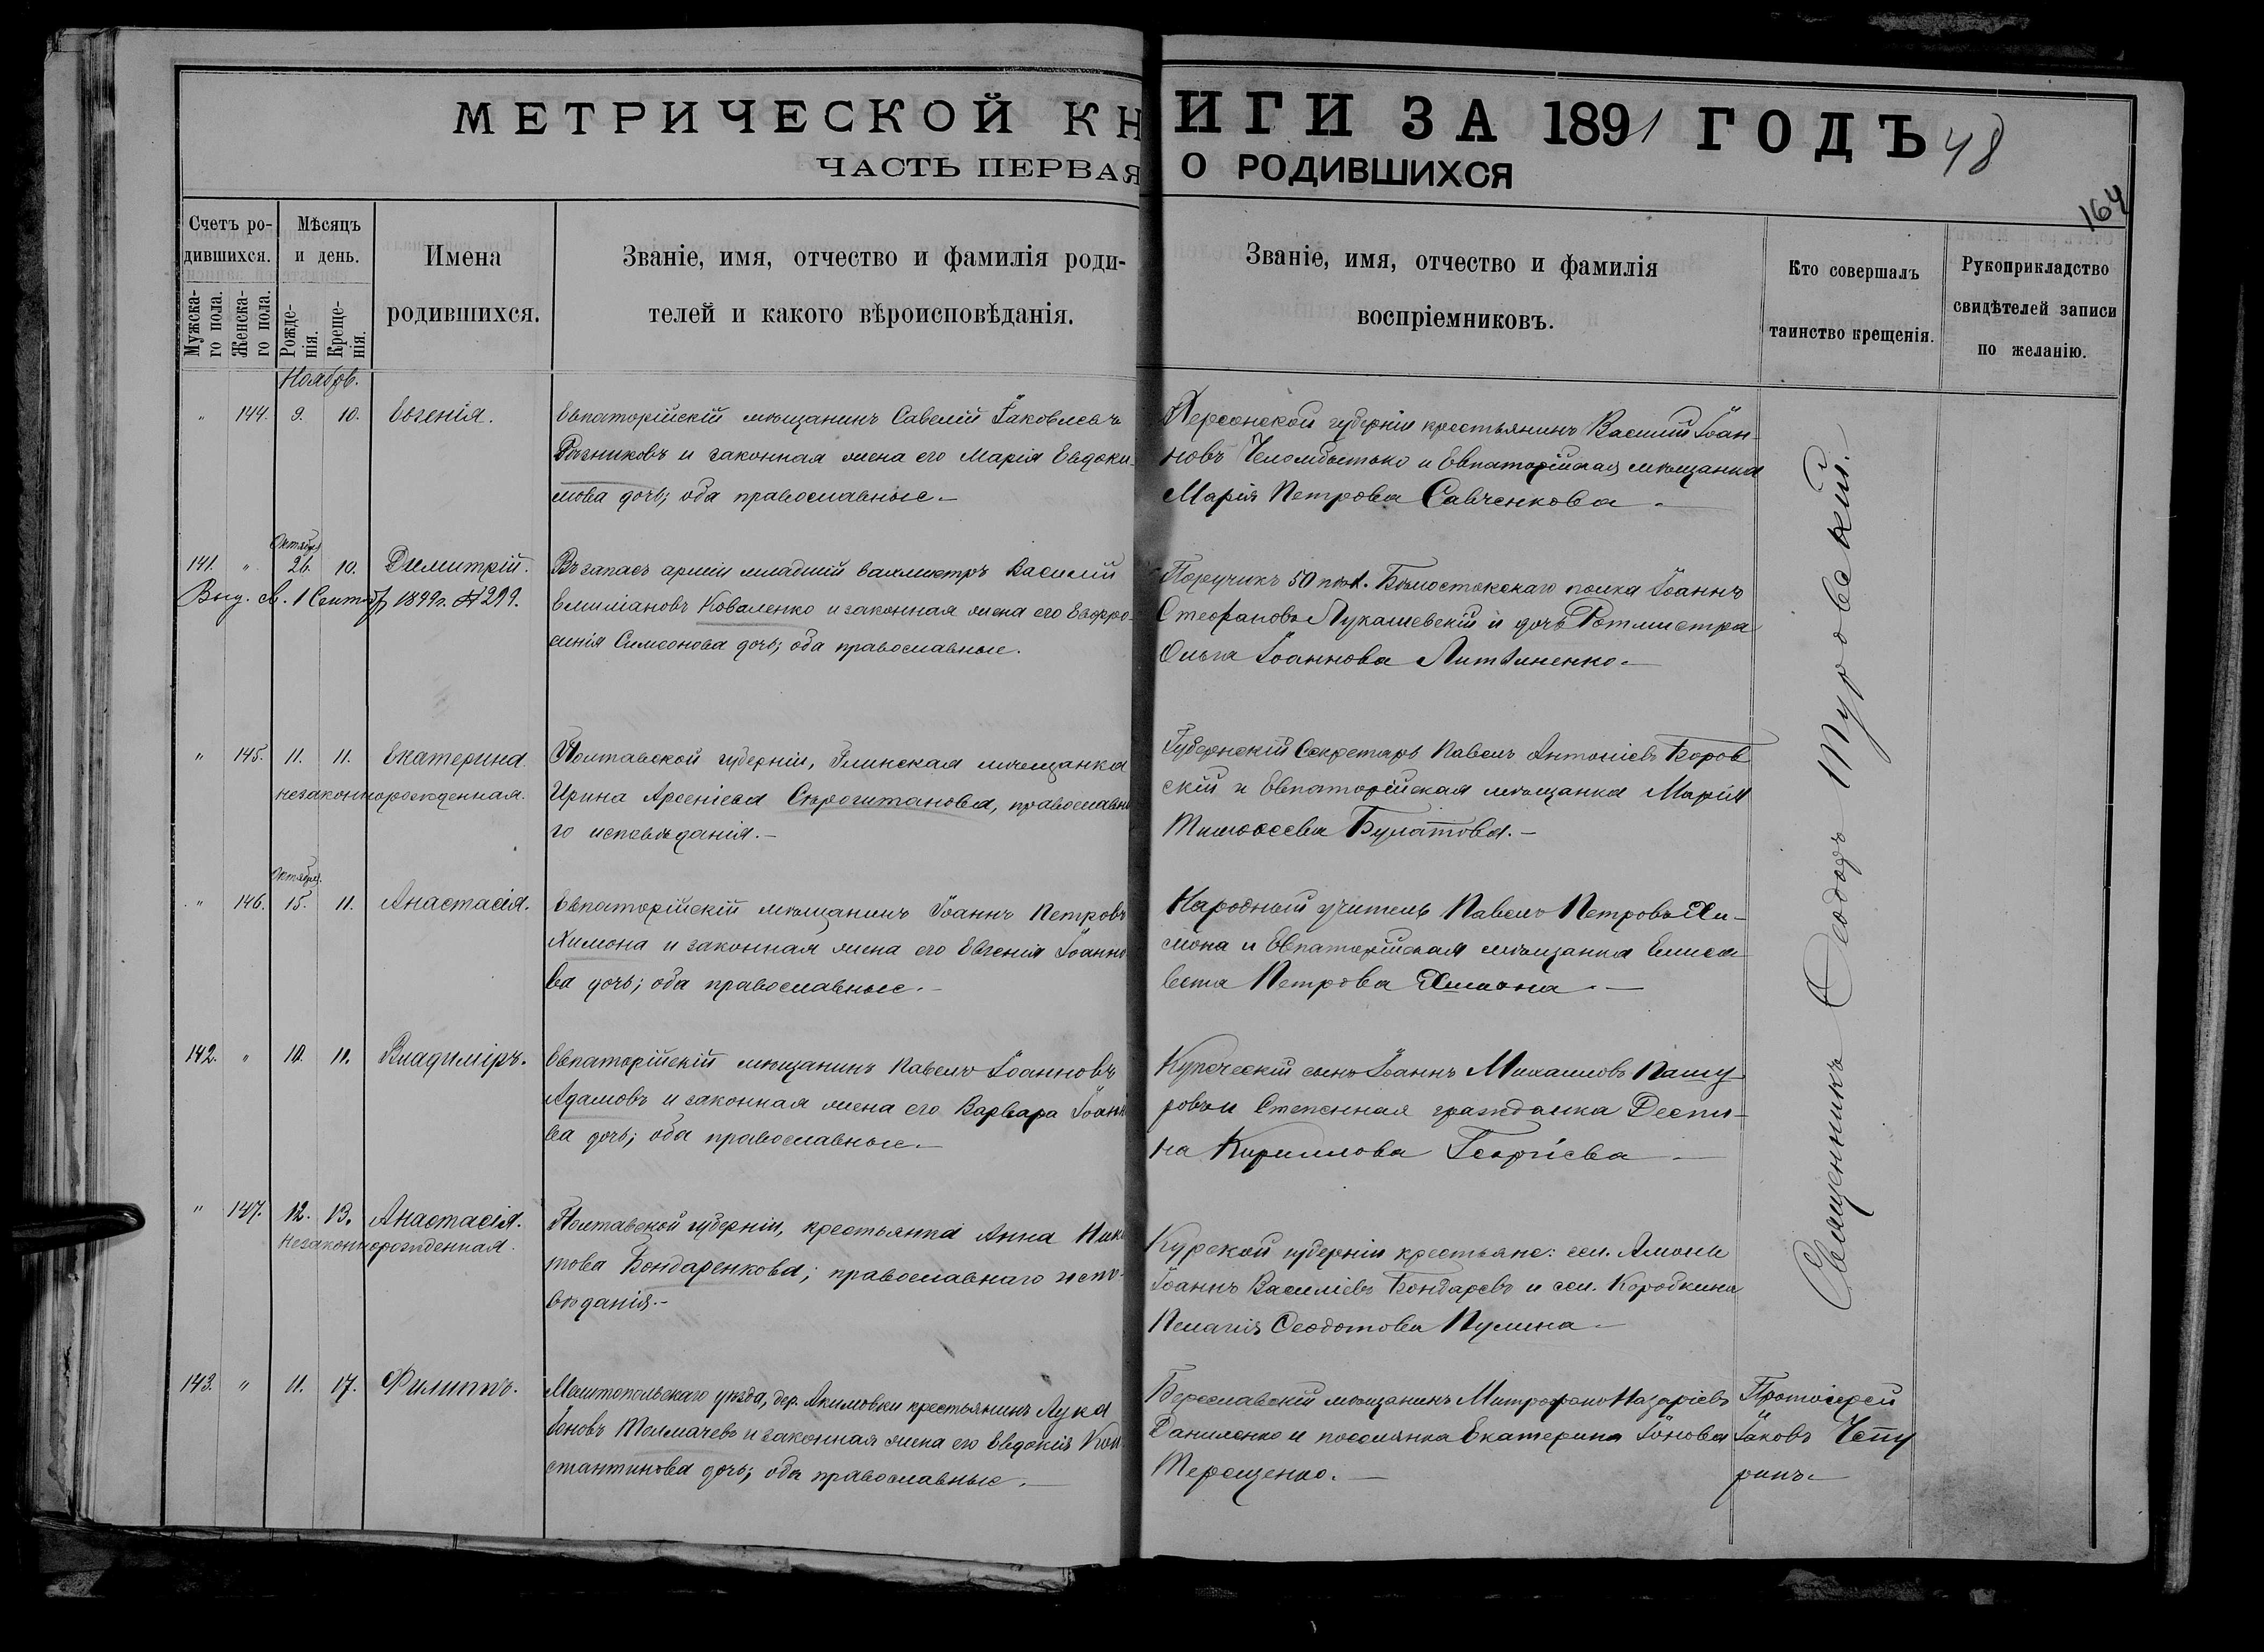 МЕТРИЧЕСКОЙ КНИГИ ЗА 1891 ГОДЪ 48
ЧАСТЬ ПЕРВАЯ О РОДИВШИХСЯ
164
Счетъ ро-
дившихся.
Мужска-
го пола.
Женска-
го пола.
Мѣсяцъ
и день.
Рожде-
нія.
Креще-
нія.
Имена
родившихся.
Званіе, имя, отчество и фамилія роди-
телей и какого вѣроисповѣданія.
Званіе, имя, отчество и фамилія
воспріемниковъ.
Кто совершалъ
таинство крещенія.
Рукоприкладство
свидѣтелей записи
по желанію.
Ноябрь.
" 144. 9. 10. Евгенія.
Евпаторійскій мѣщанинъ Савелій Іаковлевъ
Рѣзниковъ и законная жена его Марія Евдоки-
мова дочь; оба православные.—
Херсонской губерніи крестьянинъ Василій Іоан-
новъ и Евпаторійская мѣщанка
Марія Петрова Савченкова.
Октября
141. " 26. 10. Димитрій.
Выд. св. 1 Сентяб 1899 г. № 299.
Въ запасѣ арміи младшій вахмистръ Василій
Емиліановъ Коваленко и законная жена его Евфро-
синія Симеонова дочь; оба православные.
Поручикъ 50 пѣх. Бѣлостокскаго полка Іоаннъ
Стефановъ Лукашевскій и дочь Ротмистра
Ольга Іоаннова Литвиненко.
" 145. 11. 11. Екатерина.
незаконнорожденная.
Полтавской губерніи, Глинская мѣщанка
Ирина Арсеніева Скрогитанова, православна
го исповѣданія.—
Губернскій Секретарь Павелъ Антоніевъ Боров
скій и Евпаторійская мѣщанка Марія
Тимоѳеева Булатова.—
Октября.
" 146. 15. 11. Анастасія.
Евпаторійскій мѣщанинъ Іоаннъ Петровъ
Химона и законная жена его Евгенія Іоанно
ва дочь; оба православные.—
Народный учитель Павелъ Петровъ Хи-
мона и Евпаторійская мѣщанка Елиса-
вета Петрова Химона.—
142. " 10. 11. Владиміръ.
Евпаторійскій мѣщанинъ Павелъ Іоанновъ
Адамовъ и законная жена его Варвара Іоанно
ва дочь; оба православные.—
Купеческій сынъ Іоаннъ Михаиловъ Пашу
ровъ и Степенная гражданка Деспи-
на Кириллова Георгіева
" 147. 12. 13. Анастасія.
Незаконнорожденная.
Полтавской губерніи, крестьянка Анна Ники
това Бондаренкова; православнаго испо-
вѣданія.—
Курской губерніи крестьяне: сел. Амони
Іоаннъ Василіевъ Бондаревъ и сел. Коробкина
Пелагія Ѳеодотова Пулина
Священникъ Ѳеодоръ Туровскій.
143. " 11. 17. Филиппъ.
Мелитопольскаго уѣзда, дер. Акимовки крестьянинъ Лука
Іоновъ Толмачевъ и законная жена его Евдокія Кон
стантинова дочь; оба православные.—
Бериславскій мѣщанинъ Митрофанъ Назаріевъ
Даниленко и поселянка Екатерина Іонова
Терещенко.—
Протоіерей
Іаковъ Чепу
ринъ